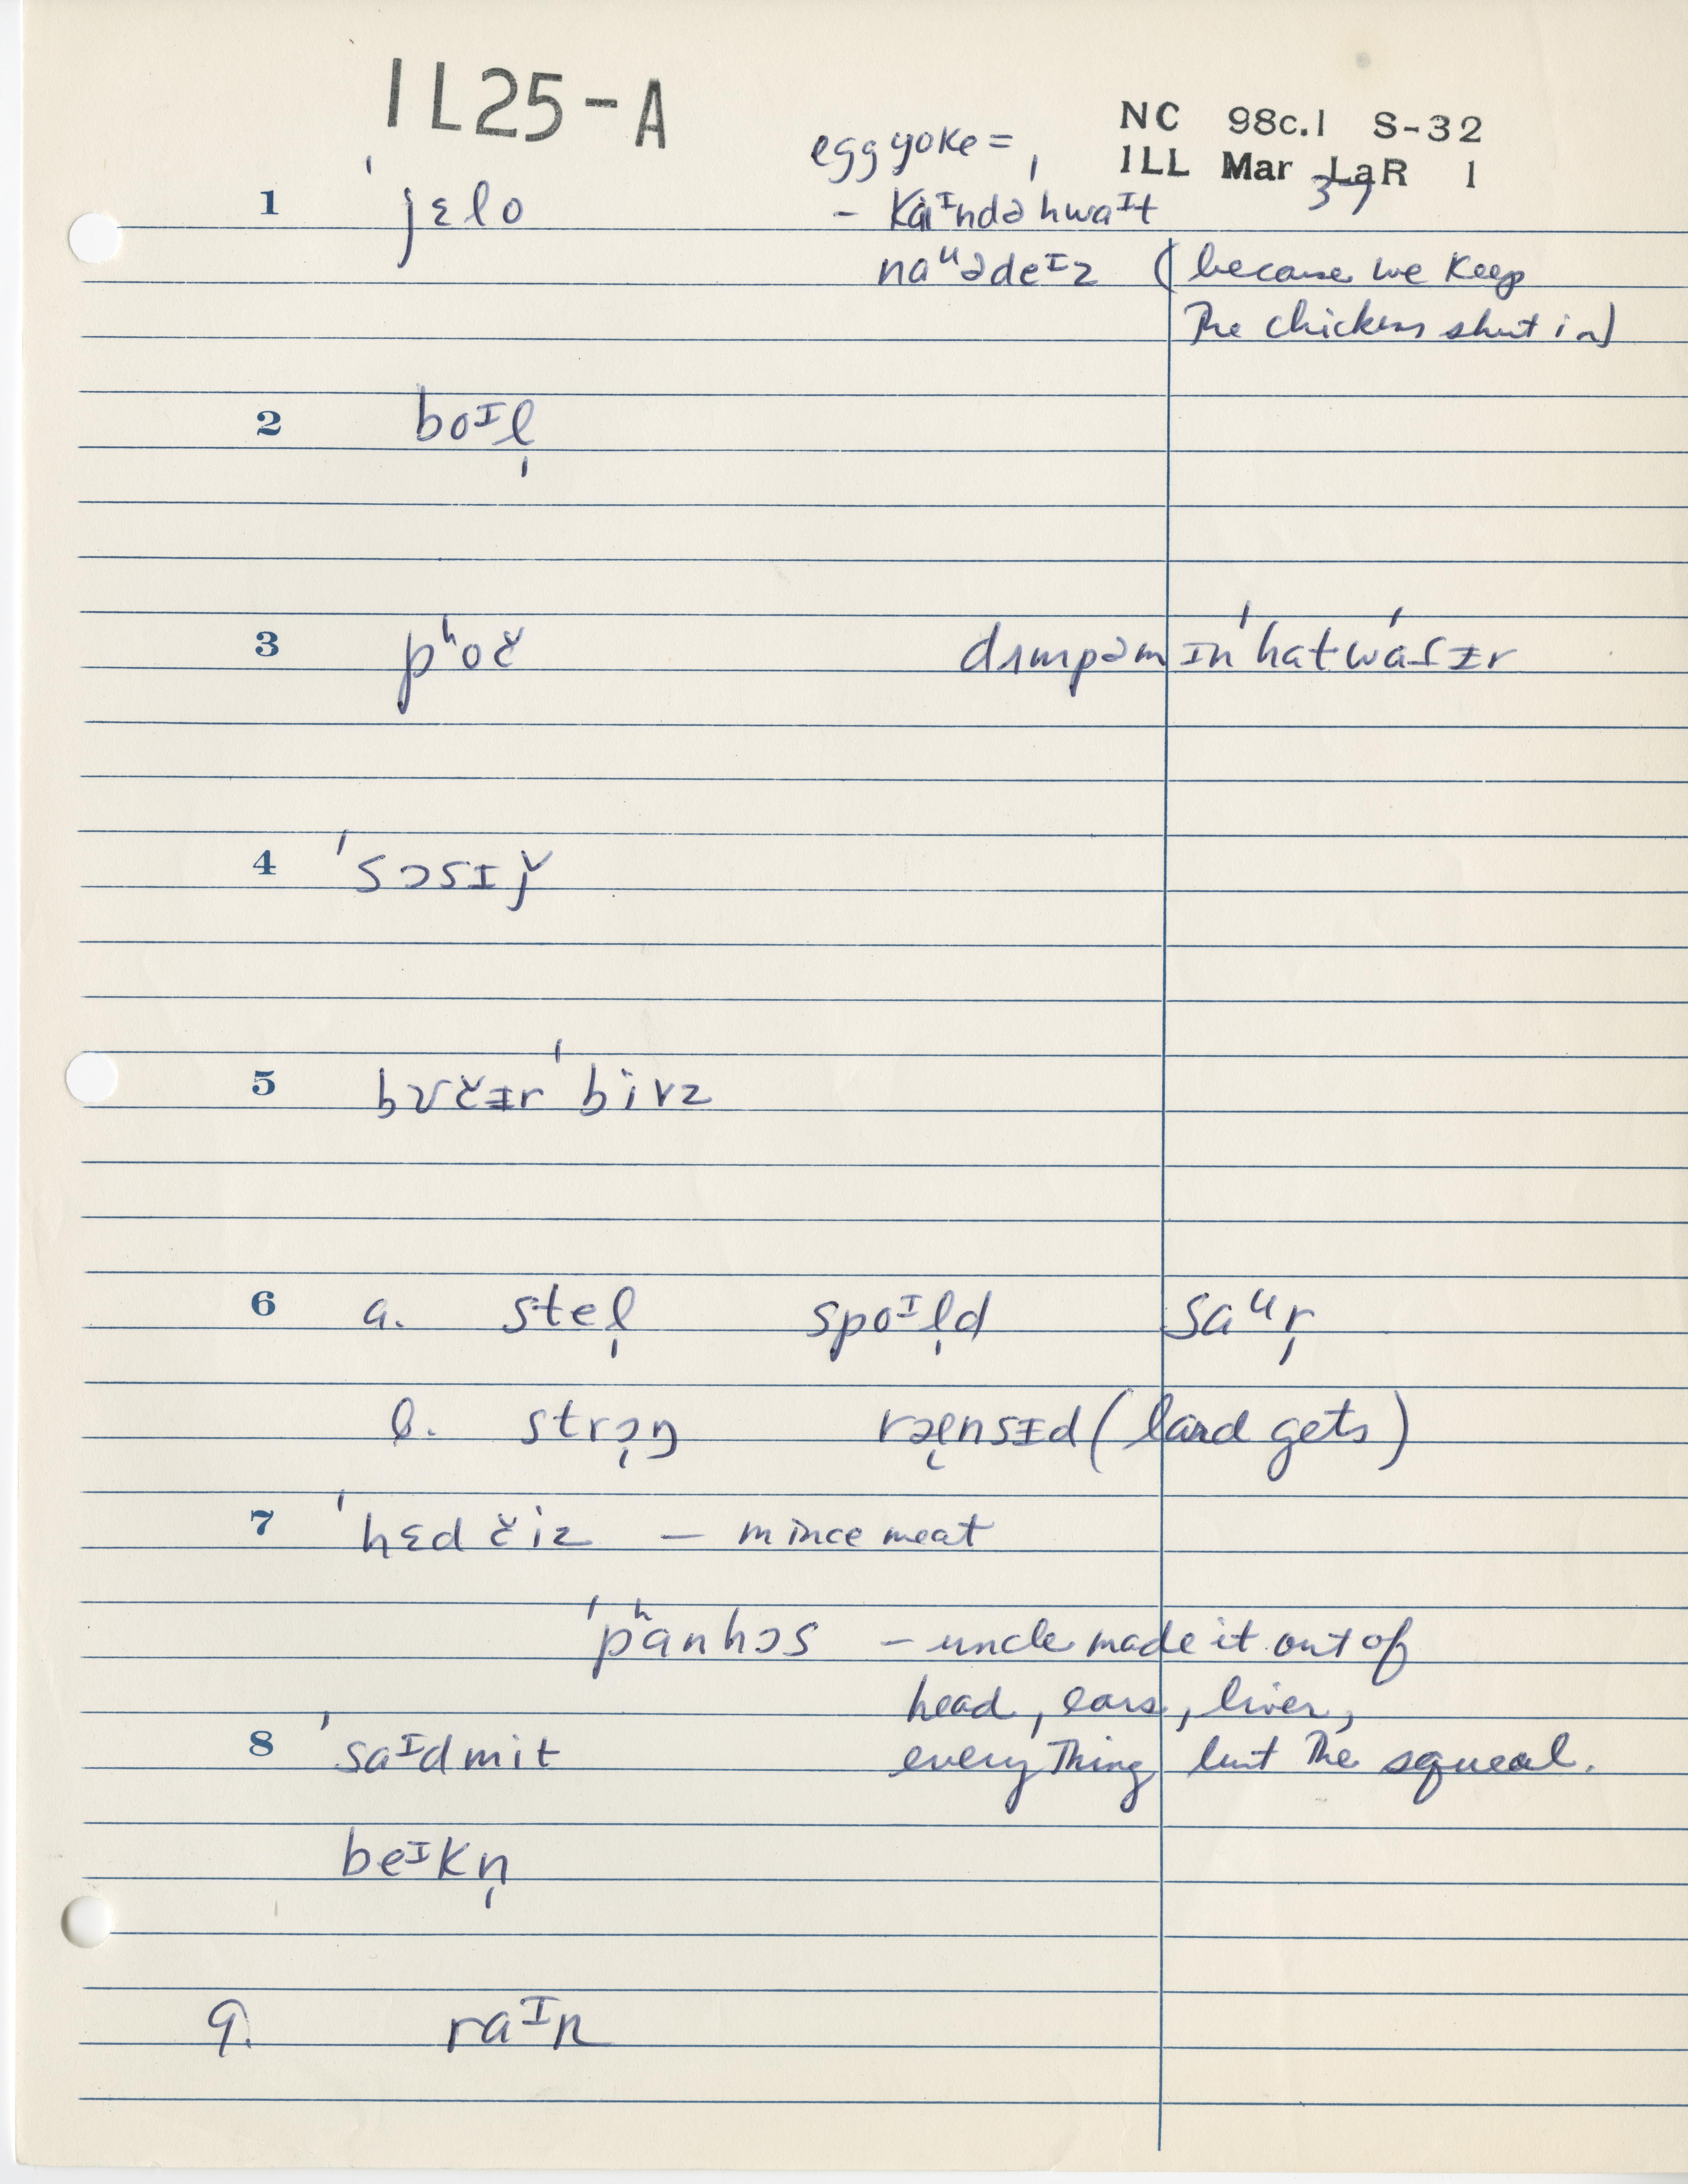 1L25-A
NC 98c.1 S-32
ILL Mar LaR 1
37
eggyoke =
1 ˈjɛlo - kaᶦndə ˈhwaᶦt
naᵘədeᶦz (because we keep
The chickens shut in)
2 boᶦl̩
3 pʰoč dʌmpəm ɪn ˈhatˈwaɾɪr
4 ˈsɔsɪǰ
5 bʊčɨr ˈbivz
6 a. stel̩ spoᶦl̩d saᵘr̩
b. strɔ̩ŋ ræ̨nsɪd (lard gets)
7 ˈhɛdčiz - mince meat
ˈpʰanhɔs - uncle made it out of
head, ears, liver,
everything but The squeal.
8 ˈsaᶦdmit
beᶦkn̩
9. raᶦn